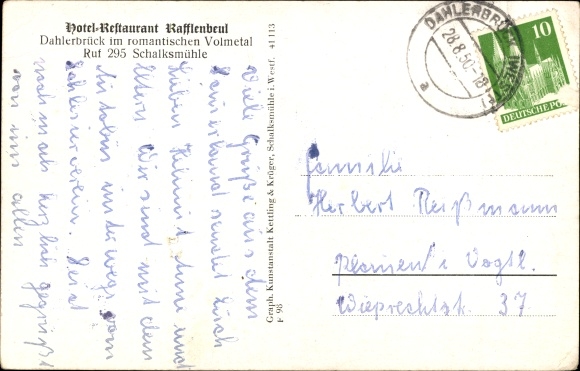 Hotel-Restaurant Rafflenbeul
Dahlerbrück im romantischen Volmetal
Ruf 295 Schalksmühle
Viele Grüße aus dem
Sauerland sendet Euch
lieben Helmut Anne und
Eltern Wir sind mit dem
Autobus unterwegs vom
verein. Seid
noch mals herzlich gegrüßt
von uns allen
Graph. Kunstanstalt Kettling & Krüger, Schalksmühle i. Westf. 41113
F 98
DAHLERBRÜCK (WESTF)
28.8.50.-18
a
10
DEUTSCHE POST
Familie
Herbert Reißmann
Plauen i Vogtl.
Wieprechtstr. 37